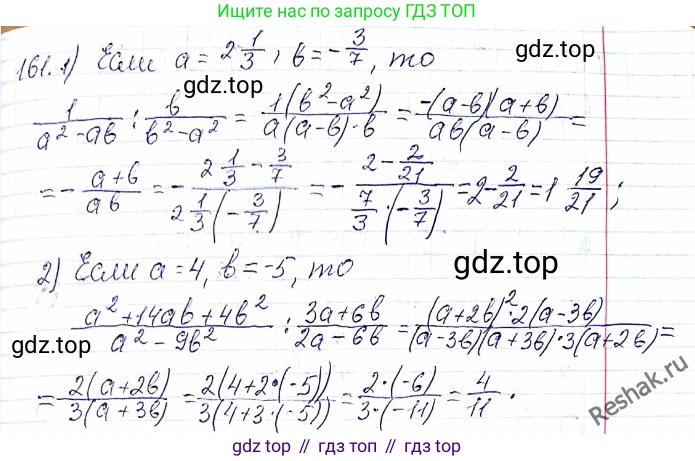 Ищите нас по запросу ГДЗ ТОП
161. 1) Если a = 2 1/3 ; b = - 3/7, то
gdz.top gdz.top
1/(a² - ab) : b/(b² - a²) = 1(b² - a²)/(a(a - b)·b) = -(a - b)(a + b)/(ab(a - b)) =
= - (a + b)/(ab) = - (2 1/3 - 3/7)/(2 1/3 (- 3/7)) = - (2 - 2/21)/(7/3 · (- 3/7)) = 2 - 2/21 = 1 19/21 ;
2) Если a = 4, b = -5, то
gdz.top
(a² + 14ab + 4b²)/(a² - 9b²) : (3a + 6b)/(2a - 6b) = (a + 2b)² · 2(a - 3b)/((a - 3b)(a + 3b) · 3(a + 2b)) =
= 2(a + 2b)/(3(a + 3b)) = 2(4 + 2·(-5))/(3(4 + 3·(-5))) = 2·(-6)/(3·(-11)) = 4/11 .
Reshak.ru
gdz.top // гдз.топ // gdz.top // гдз.топ